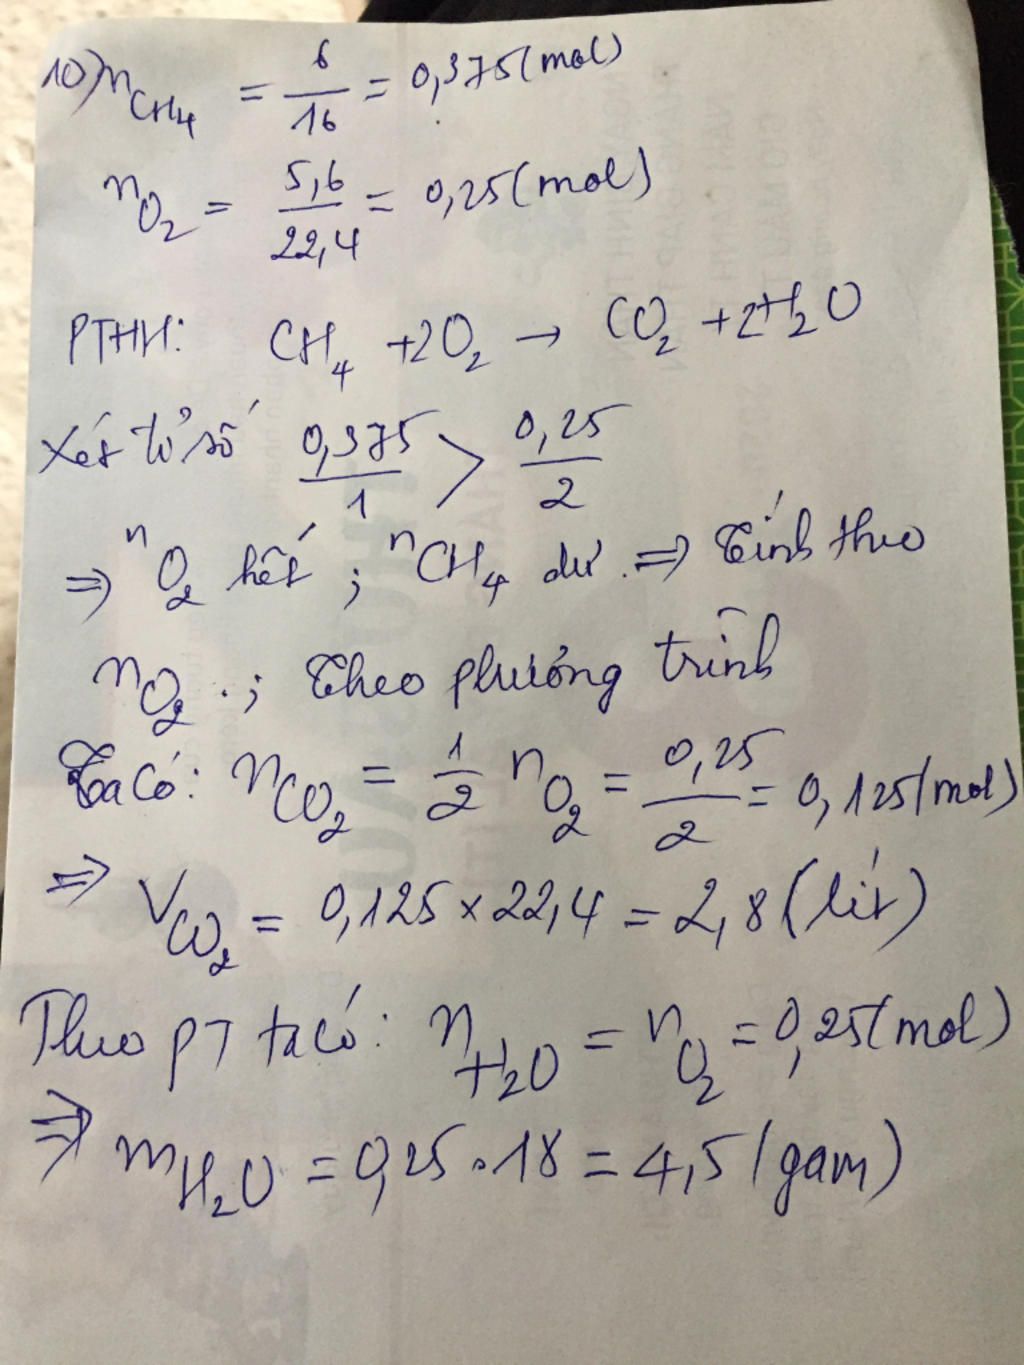 10) nCH4 = 6/16 = 0,375(mol)
nO2 = 5,6/22,4 = 0,25(mol)
PTHH: CH4 + 2O2 → CO2 + 2H2O
Xét tỉ số 0,375/1 > 0,25/2
⇒ nO2 hết ; nCH4 dư. ⇒ Tính theo
nO2 . ; Theo phương trình
Ta có: nCO2 = 1/2 nO2 = 0,25/2 = 0,125(mol)
⇒ VCO2 = 0,125 × 22,4 = 2,8 (lít)
Theo PT ta có: nH2O = nO2 = 0,25(mol)
⇒ mH2O = 0,25 . 18 = 4,5 (gam)